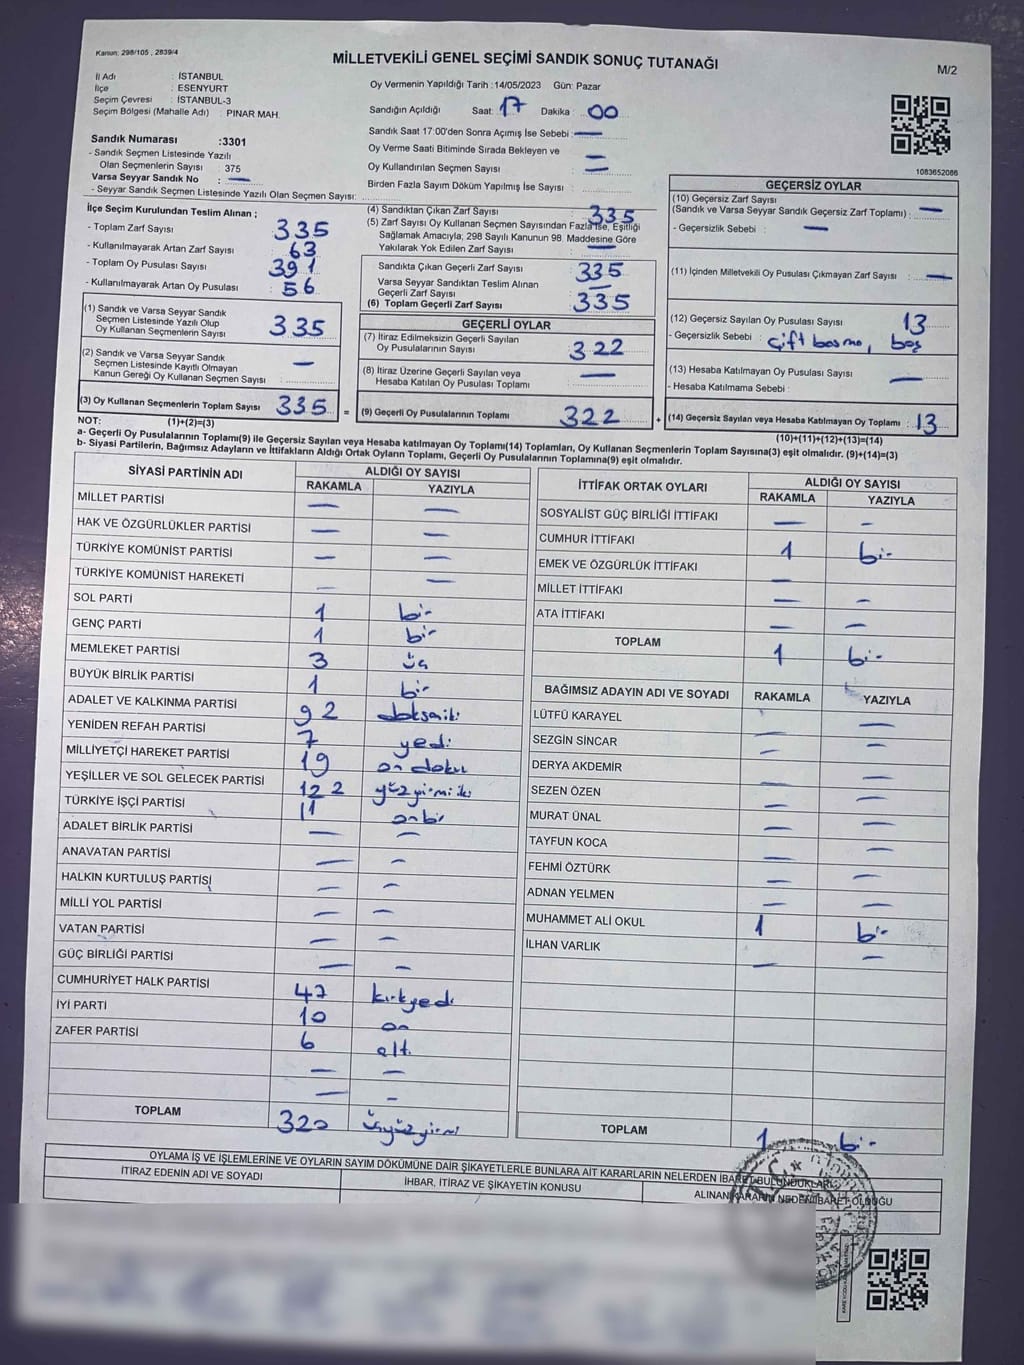 Kanun: 298/105 , 2839/4
MİLLETVEKİLİ GENEL SEÇİMİ SANDIK SONUÇ TUTANAĞI
M/2
İl Adı : İSTANBUL
İlçe : ESENYURT
Seçim Çevresi : İSTANBUL-3
Seçim Bölgesi (Mahalle Adı) : PINAR MAH.
Oy Vermenin Yapıldığı Tarih :14/05/2023 Gün: Pazar
Sandığın Açıldığı Saat: 17 Dakika : 00
Sandık Saat 17:00'den Sonra Açımış İse Sebebi: —
Oy Verme Saati Bitiminde Sırada Bekleyen ve
Oy Kullandırılan Seçmen Sayısı —
Birden Fazla Sayım Döküm Yapılmış İse Sayısı :
Sandık Numarası :3301
- Sandık Seçmen Listesinde Yazılı
Olan Seçmenlerin Sayısı : 375
Varsa Seyyar Sandık No : —
- Seyyar Sandık Seçmen Listesinde Yazılı Olan Seçmen Sayısı:
1083652086
İlçe Seçim Kurulundan Teslim Alınan ;
- Toplam Zarf Sayısı : 335
- Kullanılmayarak Artan Zarf Sayısı : 63
- Toplam Oy Pusulası Sayısı : 391
- Kullanılmayarak Artan Oy Pusulası : 56
(1) Sandık ve Varsa Seyyar Sandık
Seçmen Listesinde Yazılı Olup
Oy Kullanan Seçmenlerin Sayısı : 335
(2) Sandık ve Varsa Seyyar Sandık
Seçmen Listesinde Kayıtlı Olmayan
Kanun Gereği Oy Kullanan Seçmen Sayısı : —
(3) Oy Kullanan Seçmenlerin Toplam Sayısı : 335 =
(4) Sandıktan Çıkan Zarf Sayısı : 335
(5) Zarf Sayısı Oy Kullanan Seçmen Sayısından Fazla İse, Eşitliği
Sağlamak Amacıyla; 298 Sayılı Kanunun 98. Maddesine Göre
Yakılarak Yok Edilen Zarf Sayısı : —
Sandıkta Çıkan Geçerli Zarf Sayısı : 335
Varsa Seyyar Sandıktan Teslim Alınan
Geçerli Zarf Sayısı : —
(6) Toplam Geçerli Zarf Sayısı : 335
GEÇERLİ OYLAR
(7) İtiraz Edilmeksizin Geçerli Sayılan
Oy Pusulalarının Sayısı : 322
(8) İtiraz Üzerine Geçerli Sayılan veya
Hesaba Katılan Oy Pusulası Toplamı : —
(9) Geçerli Oy Pusulalarının Toplamı : 322 +
GEÇERSİZ OYLAR
(10) Geçersiz Zarf Sayısı
(Sandık ve Varsa Seyyar Sandık Geçersiz Zarf Toplamı) : —
- Geçersizlik Sebebi : —
(11) İçinden Milletvekili Oy Pusulası Çıkmayan Zarf Sayısı : —
(12) Geçersiz Sayılan Oy Pusulası Sayısı : 13
- Geçersizlik Sebebi : çift basma, boş
(13) Hesaba Katılmayan Oy Pusulası Sayısı : —
- Hesaba Katılmama Sebebi :
(14) Geçersiz Sayılan veya Hesaba Katılmayan Oy Toplamı : 13
NOT: (1)+(2)=(3)
(10)+(11)+(12)+(13)=(14)
a- Geçerli Oy Pusulalarının Toplamı(9) ile Geçersiz Sayılan veya Hesaba katılmayan Oy Toplamı(14) Toplamları, Oy Kullanan Seçmenlerin Toplam Sayısına(3) eşit olmalıdır. (9)+(14)=(3)
b- Siyasi Partilerin, Bağımsız Adayların ve İttifakların Aldığı Ortak Oyların Toplamı, Geçerli Oy Pusulalarının Toplamına(9) eşit olmalıdır.
SİYASİ PARTİNİN ADI ALDIĞI OY SAYISI
RAKAMLA YAZIYLA
MİLLET PARTİSİ — —
HAK VE ÖZGÜRLÜKLER PARTİSİ — —
TÜRKİYE KOMÜNİST PARTİSİ — —
TÜRKİYE KOMÜNİST HAREKETİ — —
SOL PARTİ 1 bir
GENÇ PARTİ 1 bir
MEMLEKET PARTİSİ 3 üç
BÜYÜK BİRLİK PARTİSİ 1 bir
ADALET VE KALKINMA PARTİSİ 92 doksaniki
YENİDEN REFAH PARTİSİ 7 yedi
MİLLİYETÇİ HAREKET PARTİSİ 19 on dokuz
YEŞİLLER VE SOL GELECEK PARTİSİ 122 yüzyirmiiki
TÜRKİYE İŞÇİ PARTİSİ 11 onbir
ADALET BİRLİK PARTİSİ — —
ANAVATAN PARTİSİ — —
HALKIN KURTULUŞ PARTİSİ — —
MİLLİ YOL PARTİSİ — —
VATAN PARTİSİ — —
GÜÇ BİRLİĞİ PARTİSİ — —
CUMHURİYET HALK PARTİSİ 47 kırkyedi
İYİ PARTİ 10 on
ZAFER PARTİSİ 6 altı
— —
— —
TOPLAM 320 üçyüzyirmi
İTTİFAK ORTAK OYLARI ALDIĞI OY SAYISI
RAKAMLA YAZIYLA
SOSYALİST GÜÇ BİRLİĞİ İTTİFAKI — —
CUMHUR İTTİFAKI 1 bir
EMEK VE ÖZGÜRLÜK İTTİFAKI —
MİLLET İTTİFAKI — —
ATA İTTİFAKI — —
TOPLAM 1 bir
BAĞIMSIZ ADAYIN ADI VE SOYADI RAKAMLA YAZIYLA
LÜTFÜ KARAYEL — —
SEZGİN SİNCAR — —
DERYA AKDEMİR — —
SEZEN ÖZEN — —
MURAT ÜNAL — —
TAYFUN KOCA — —
FEHMİ ÖZTÜRK — —
ADNAN YELMEN — —
MUHAMMET ALİ OKUL 1 bir
İLHAN VARLIK — —
TOPLAM 1 bir
OYLAMA İŞ VE İŞLEMLERİNE VE OYLARIN SAYIM DÖKÜMÜNE DAİR ŞİKAYETLERLE BUNLARA AİT KARARLARIN NELERDEN İBARET BULUNDUKLARI
İTİRAZ EDENİN ADI VE SOYADI
İHBAR, İTİRAZ VE ŞİKAYETİN KONUSU
ALINAN KARARIN NEDEN İBARET OLDUĞU